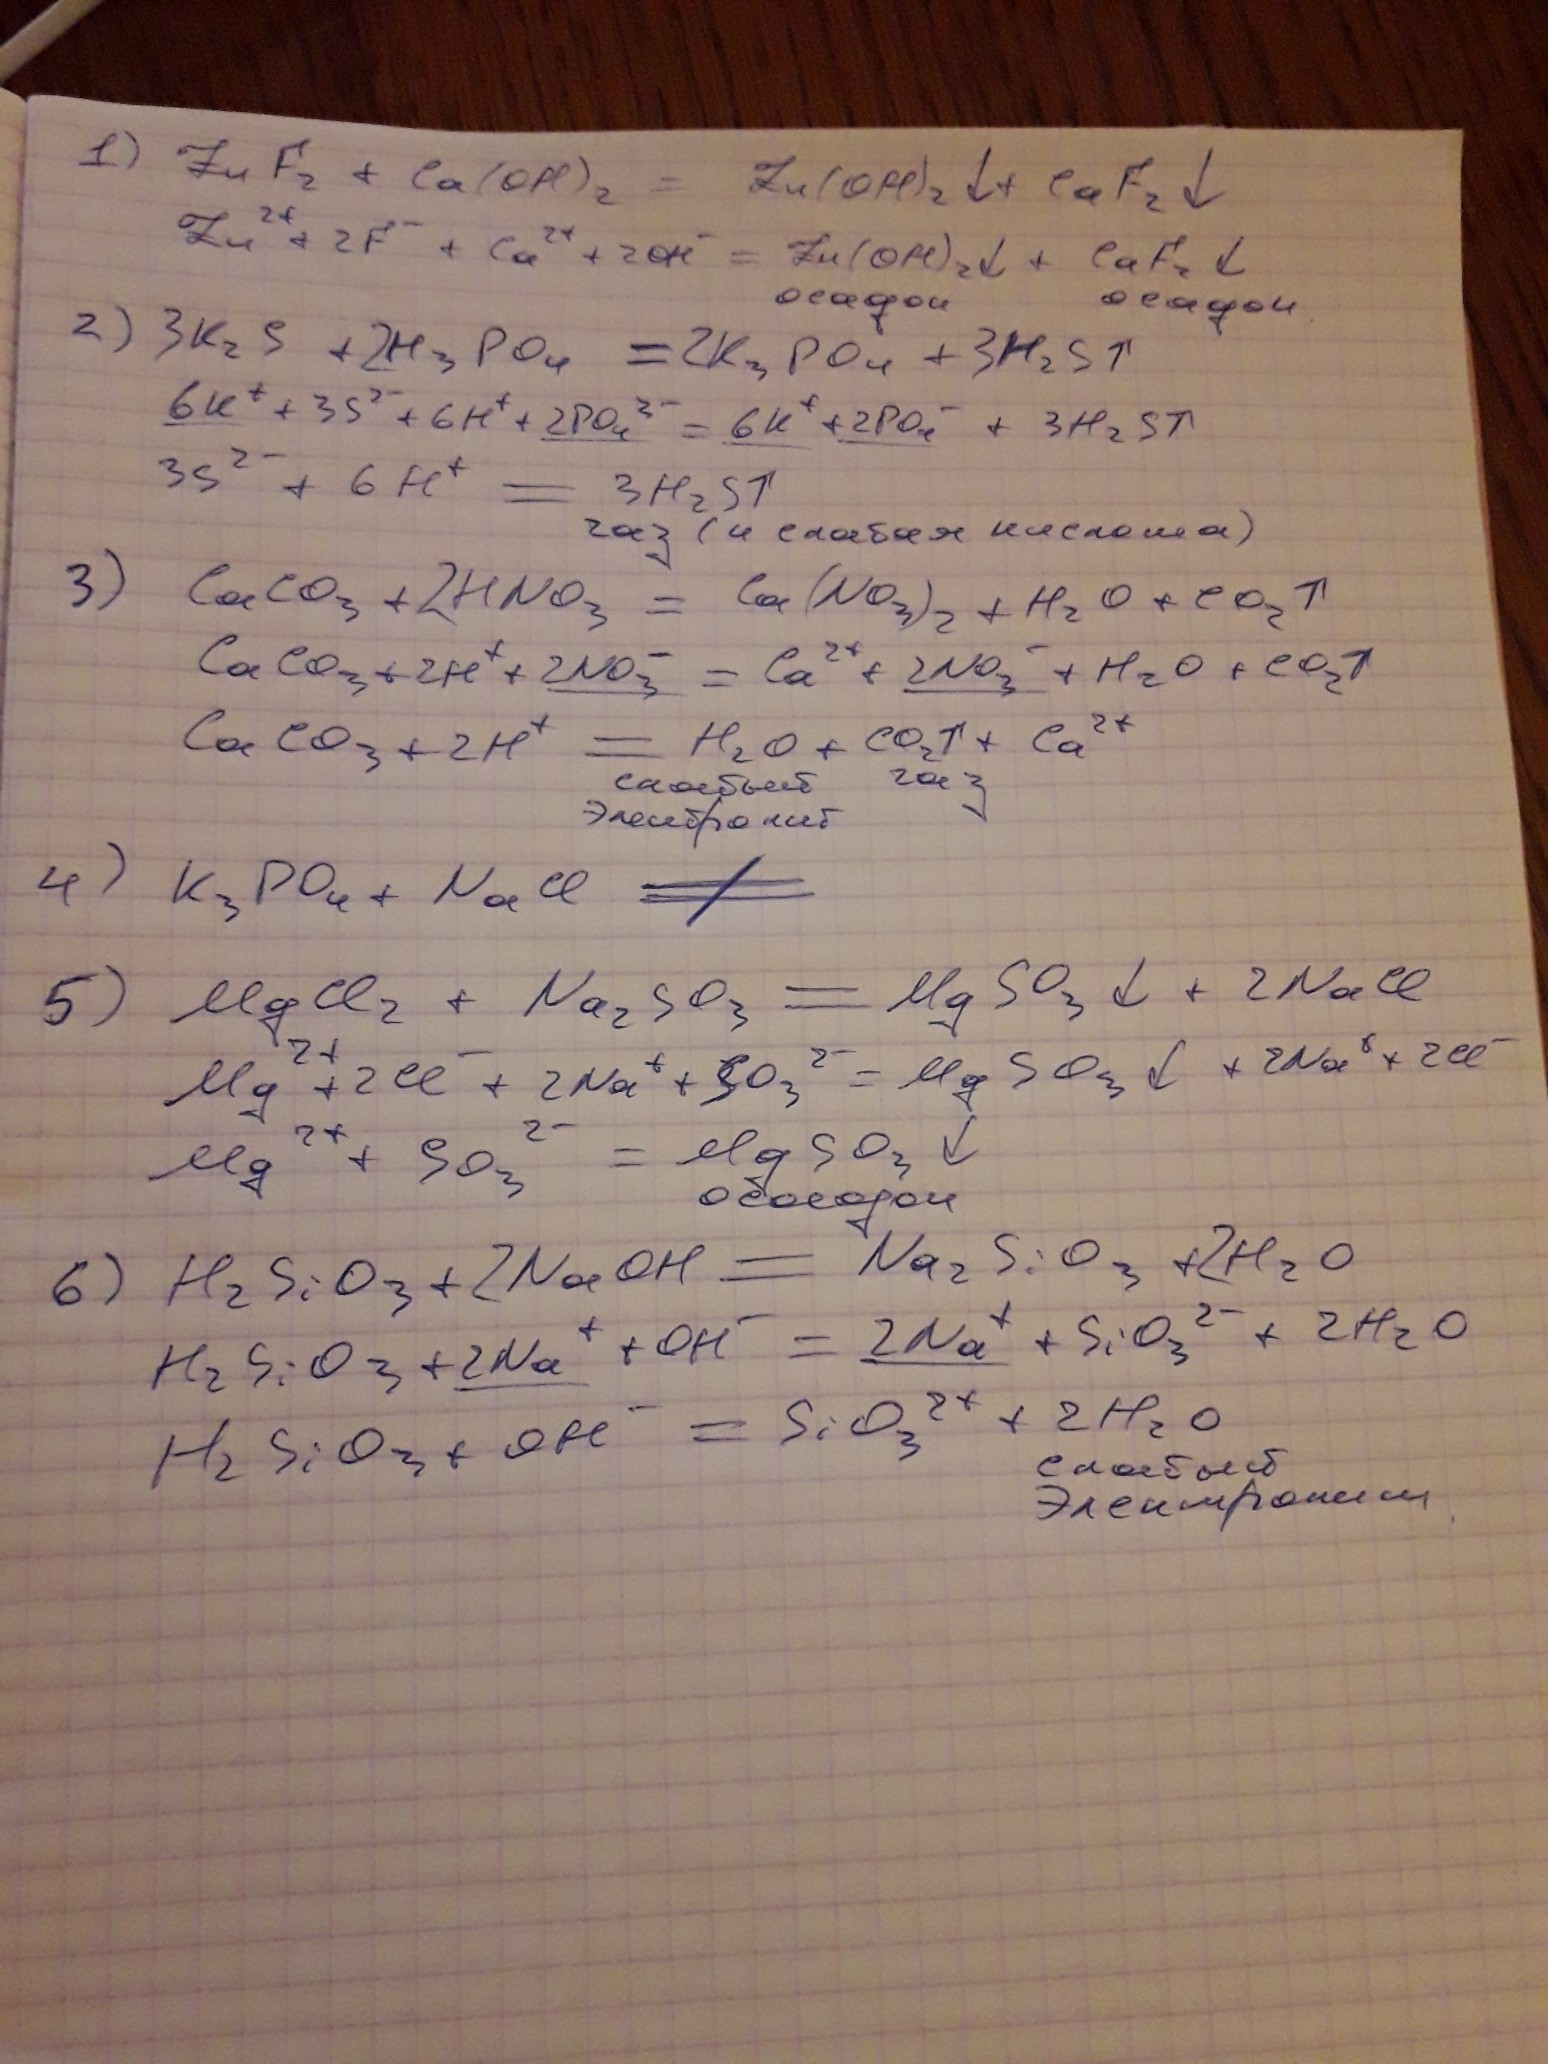 1) ZnF₂ + Ca(OH)₂ = Zn(OH)₂↓ + CaF₂↓
Zn²⁺ + 2F⁻ + Ca²⁺ + 2OH⁻ = Zn(OH)₂↓ + CaF₂↓
осадок осадок
2) 3K₂S + 2H₃PO₄ = 2K₃PO₄ + 3H₂S↑
6K⁺ + 3S²⁻ + 6H⁺ + 2PO₄³⁻ = 6K⁺ + 2PO₄⁻ + 3H₂S↑
3S²⁻ + 6H⁺ = 3H₂S↑
газ (и слабая кислота)
3) CaCO₃ + 2HNO₃ = Ca(NO₃)₂ + H₂O + CO₂↑
CaCO₃ + 2H⁺ + 2NO₃⁻ = Ca²⁺ + 2NO₃⁻ + H₂O + CO₂↑
CaCO₃ + 2H⁺ = H₂O + CO₂↑ + Ca²⁺
слабый газ
электролит
4) K₃PO₄ + NaCl ≠
5) MgCl₂ + Na₂SO₃ = MgSO₃↓ + 2NaCl
Mg²⁺ + 2Cl⁻ + 2Na⁺ + SO₃²⁻ = MgSO₃↓ + 2Na⁺ + 2Cl⁻
Mg²⁺ + SO₃²⁻ = MgSO₃↓
6) H₂SiO₃ + 2NaOH = Na₂SiO₃ + 2H₂O
H₂SiO₃ + 2Na⁺ + OH⁻ = 2Na⁺ + SiO₃²⁻ + 2H₂O
H₂SiO₃ + OH⁻ = SiO₃²⁺ + 2H₂O
слабый
электролит